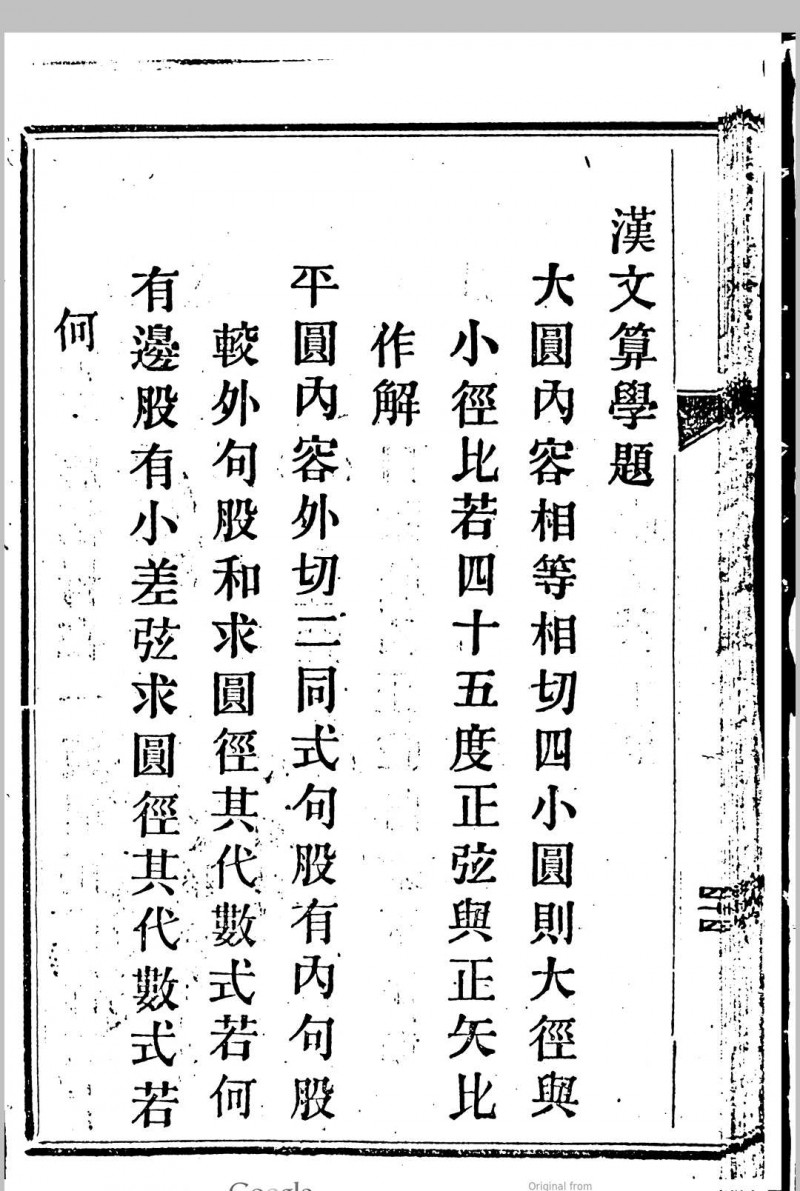 漢文算學題
大圓內容相等相切四小圓則大徑與
小徑比若四十五度正弦與正矢比
作解
平圓內容外切二同式句股有內句股
較外句股和求圓徑其代數式若何
有邊股有小差弦求圓徑其代數式若
何
Original from